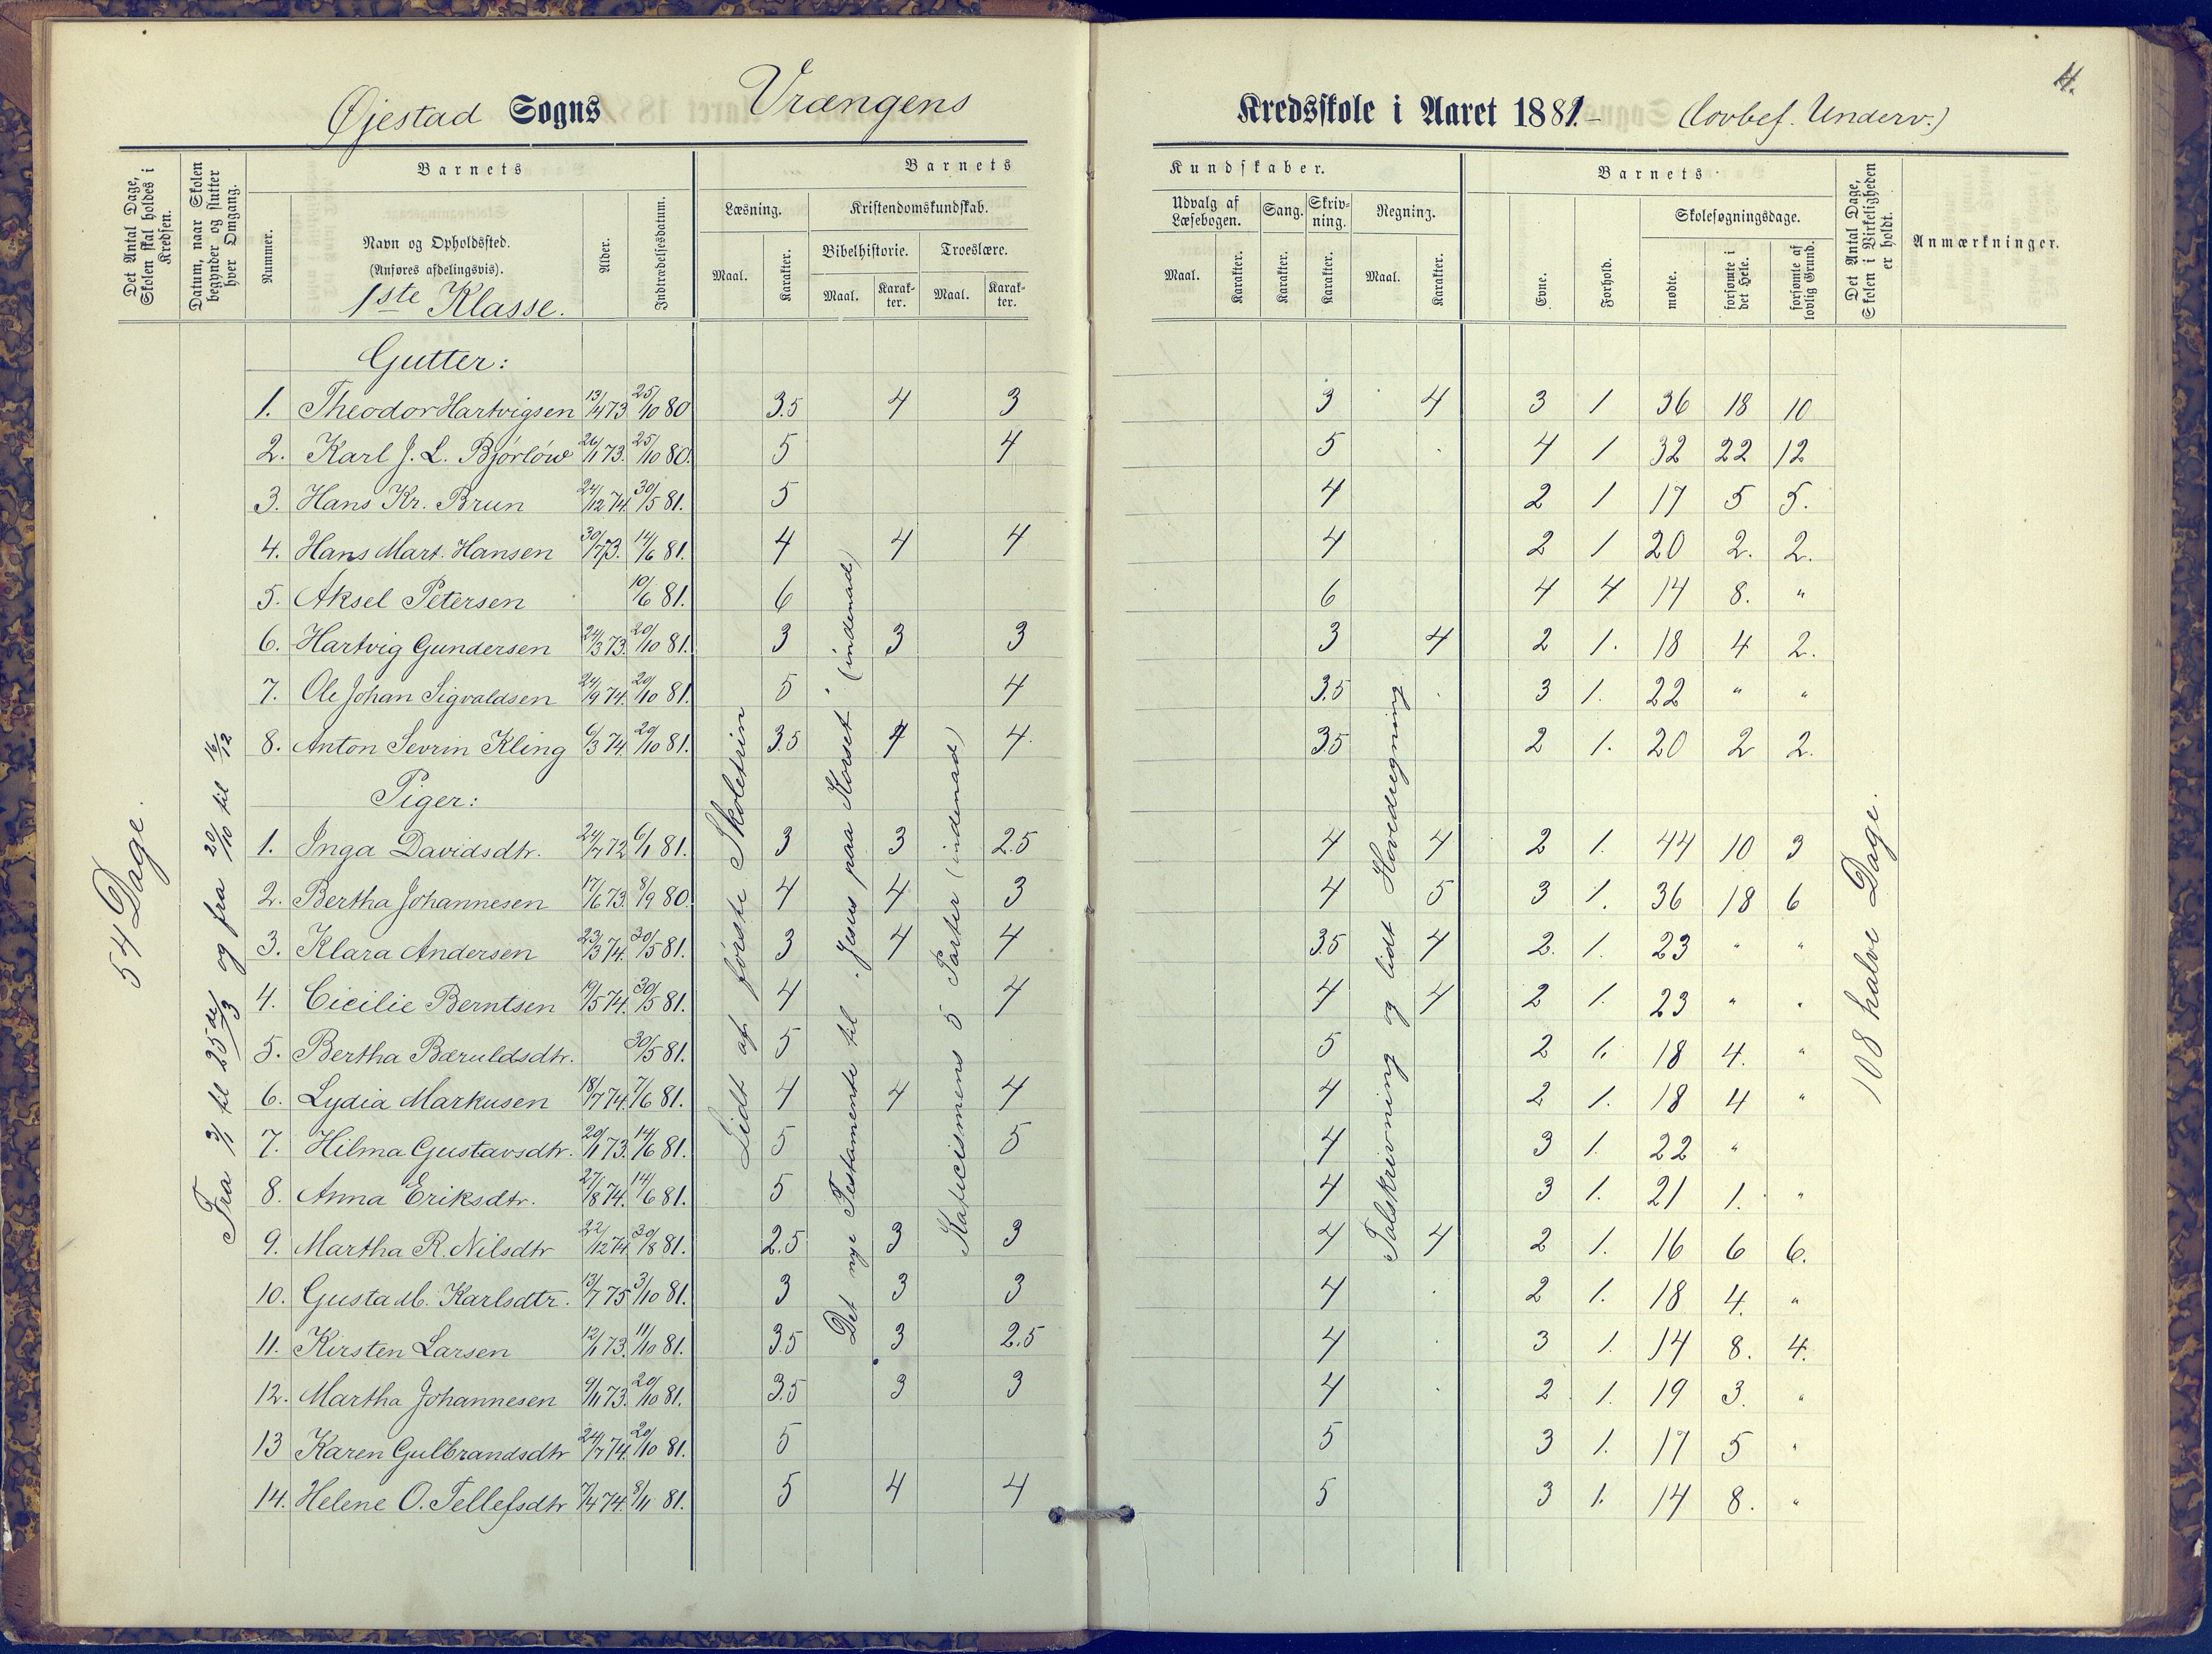 4.
Øjestad Sogns Vrængens Kredsskole i Aaret 1881.- (lovbef. Underv.)
Det Antal Dage, Skolen skal holdes i Kredsen.
Datum, naar Skolen begynder og slutter hver Omgang.
Barnets
Nummer.
Navn og Opholdssted.
(Anføres afdelingsvis).
1ste Klasse.
Alder.
Indtrædelsesdatum.
Barnets Kundskaber.
Læsning.
Maal.
Karakter.
Kristendomskundskab.
Bibelhistorie.
Maal.
Karakter.
Troeslære.
Maal.
Karakter.
Udvalg af Læsebogen.
Maal.
Karakter.
Sang.
Karakter.
Skrivning.
Karakter.
Regning.
Maal.
Karakter.
Barnets
Evne.
Forhold.
Skolesøgningsdage.
mødte.
forsømte i det Hele.
forsømte af lovlig Grund.
Det Antal Dage, Skolen i Virkeligheden er holdt.
Anmærkninger.
54 Dage.
Fra 3/1 til 25de/3 og fra 20/10 til 16/12
Lidt af første Skoletrin
Det nye Testamente til "Jesus paa Korset" (indenad)
Katecismens 5 Parter (indenad)
Talskrivning og lidt Hovedregning
108 halve Dage.
Gutter:
1. Theodor Hartvigsen 13/4 73 25/10 80 3.5 4 3 3 4 3 1 36 18 10
2. Karl J. L. Bjørløw 26/1 73. 25/10 80. 5 4 5 4 1 32 22 12
3. Hans Kr. Brun 24/12 74. 30/5 81. 5 4 2 1 17 5 5.
4. Hans Mart. Hansen 30/7 73. 14/6 81. 4 4 4 4 2 1 20 2. 2.
5. Aksel Petersen 10/6 81. 6 6 4 4 14 8. "
6. Hartvig Gundersen 24/3 73. 20/10 81. 3 3 3 3 4 2 1. 18 4 2.
7. Ole Johan Sigvaldsen 24/9 74. 20/10 81. 5 4 3.5 3 1. 22 " "
8. Anton Sevrin Kling 6/3 74. 20/10 81. 3.5 4 4. 3.5 2 1. 20 2 2.
Piger:
1. Inga Davidsdtr. 24/7 72 6/1 81. 3 3 2.5 4 4 2 1. 44 10 3
2. Bertha Johannesen 17/6 73. 8/9 80. 4 4 3 4 5 3 1. 36 18 6
3. Klara Andersen 23/3 74. 30/5 81. 3 4 4 3.5 4 2. 1. 23 " "
4. Cicilie Berntsen 19/5 74. 30/5 81. 4 4 4 4 2 1. 23 " "
5. Bertha Bæruldsdtr. 30/5 81. 5 5 2 1. 18 4. "
6. Lydia Markusen 18/7 74. 7/6 81. 4 4 4 4 2 1. 18 4 "
7. Hilma Gustavsdtr. 20/1 73. 14/6 81. 5 5 4 3 1. 22 "
8. Anna Eriksdtr. 27/8 74. 14/6 81. 5 4 3 1. 21 1. "
9. Martha R. Nilsdtr 22/12 74. 30/8 81. 2.5 3 3 4 4 2 1. 16 6 6.
10. Gusta M. Karlsdtr. 13/7 75 3/10 81. 3 3 3 4 2 1. 18 4. "
11. Kirsten Larsen 12/1 73. 11/10 81. 3.5 3 2.5 4 3 1. 14 8. 4.
12. Martha Johannesen 9/11 73. 20/10 81. 3.5 3 3 4 2 1. 19 3. "
13 Karen Gulbrandsdtr 24/7 74. 20/10 81. 5 5 3 1. 17 5 "
14. Helene O. Tellefsdtr 7/4 74. 8/11 81. 5 4 4 5 3 1. 14 8. "